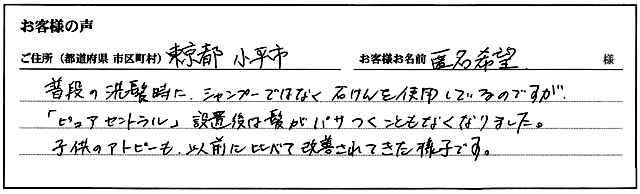 お客様の声
ご住所（都道府県 市区町村）東京都 小平市 お客様お名前 匿名希望 様
普段の洗髪時に、シャンプーではなく石けんを使用しているのですが、
「ピュアセントラル」設置後は髪がパサつくこともなくなりました。
子供のアトピーも、以前に比べて改善されてきた様子です。